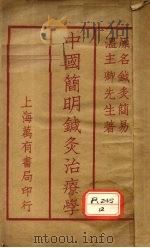 原名鍼灸簡易
溫主卿先生著
中國簡明鍼灸治療學
上海萬有書局印行
12